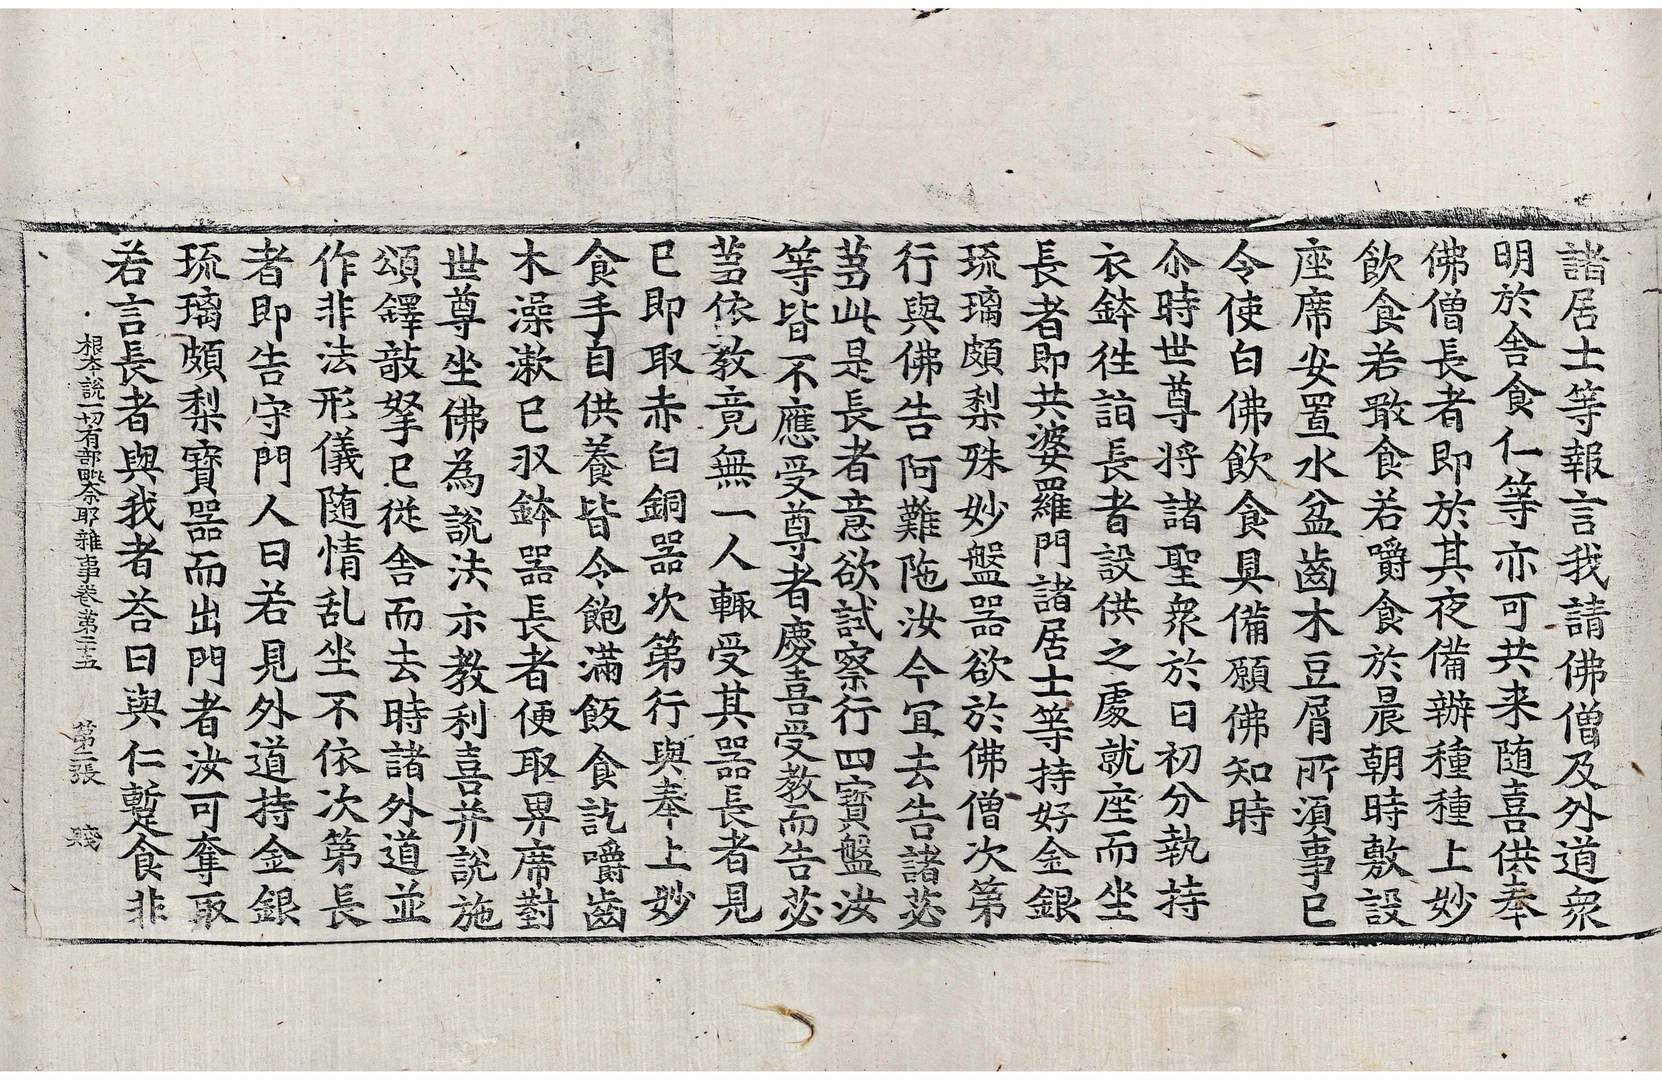 諸居士等報言我請佛僧及外道衆
明於舎食仁等亦可共来随喜供奉
佛僧長者即於其夜備辦種種上妙
飲食若噉食若嚼食於晨朝時敷設
座席安置水盆齒木豆屑所須事已
令使白佛飲食具備願佛知時
尒時世尊將諸聖衆於日初分執持
衣鉢徃詣長者設供之處就座而坐
長者即共婆羅門諸居士等持好金銀
琉璃頗梨殊妙盤器欲於佛僧次第
行與佛告阿難陁汝今宜去告諸苾
芻此是長者意欲試察行四寳盤汝
等皆不應受尊者慶喜受教而告苾
芻依教竟無一人輙受其器長者見
已即取赤白銅器次第行與奉上妙
食手自供養皆令飽滿飯食訖嚼齒
木澡漱已収鉢器長者便取畀席對
世尊坐佛為說法示教利喜并說施
頌鐸敲拏已從舍而去時諸外道並
作非法形儀随情乱坐不依次第長
者即告守門人曰若見外道持金銀
琉璃頗梨寳器而出門者汝可奪取
若言長者與我者荅曰與仁蹔食非
根本說一切有部毗奈耶雜事卷第三十五　第二張